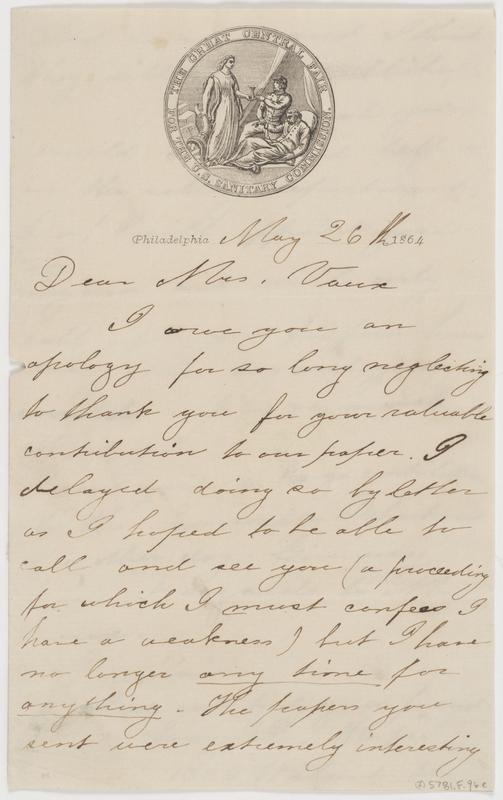 THE GREAT CENTRAL FAIR
FOR THE U.S. SANITARY COMMISSION.
Philadelphia May 26th 1864
Dear Mrs. Vaux
I owe you an
apology for so long neglecting
to thank you for your valuable
contribution to our paper. I
delayed doing so by letter
as I hoped to be able to
call and see you (a proceeding
for which I must confess I
have a weakness) but I have
no longer any time for
anything. The papers you
sent were extremely interesting
5781.F.96c